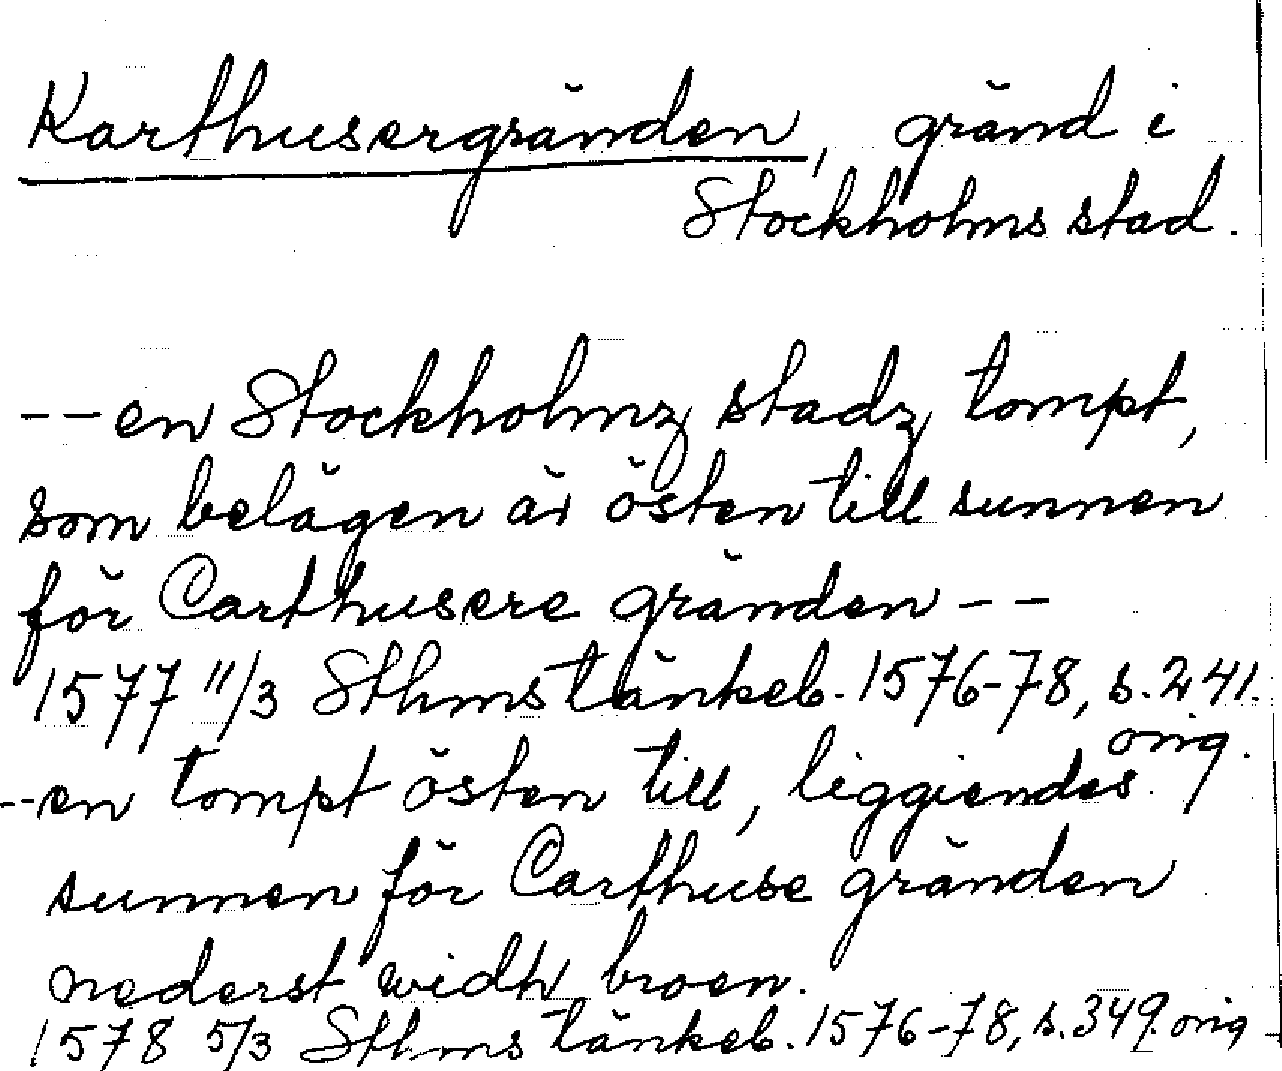 Karthusergränden, gränd i
Stockholms stad.
--en Stockholmz stadz tompt,
som belägen är östen till sunnen
för Carthusere gränden--
1577 11/3 Sthms tänkeb. 1576-78, s. 241.
orig.
--en tompt östen till, liggiendes
sunnen för Carthuse gränden
nederst widh broen.
1578 5/3 Sthms tänkeb. 1576-78, s. 349. orig